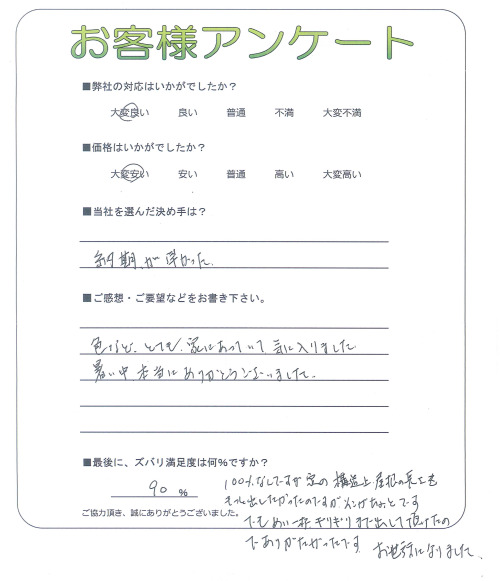 お客様アンケート
■弊社の対応はいかがでしたか？
大変良い 良い 普通 不満 大変不満
■価格はいかがでしたか？
大変安い 安い 普通 高い 大変高い
■当社を選んだ決め手は？
納期が早かった
■ご感想・ご要望などをお書き下さい。
色など、とても、家にあっていて気に入りました
暑い中、本当にありがとうございました。
■最後に、ズバリ満足度は何%ですか？
90 %
100%なしですが家の構造上屋根の長さを
もっと出したかったのですが ちょっとです
でもめい一杯ギリギリまで出して頂けたの
でありがたかったです。 お世話になりました、
ご協力頂き、誠にありがとうございました。